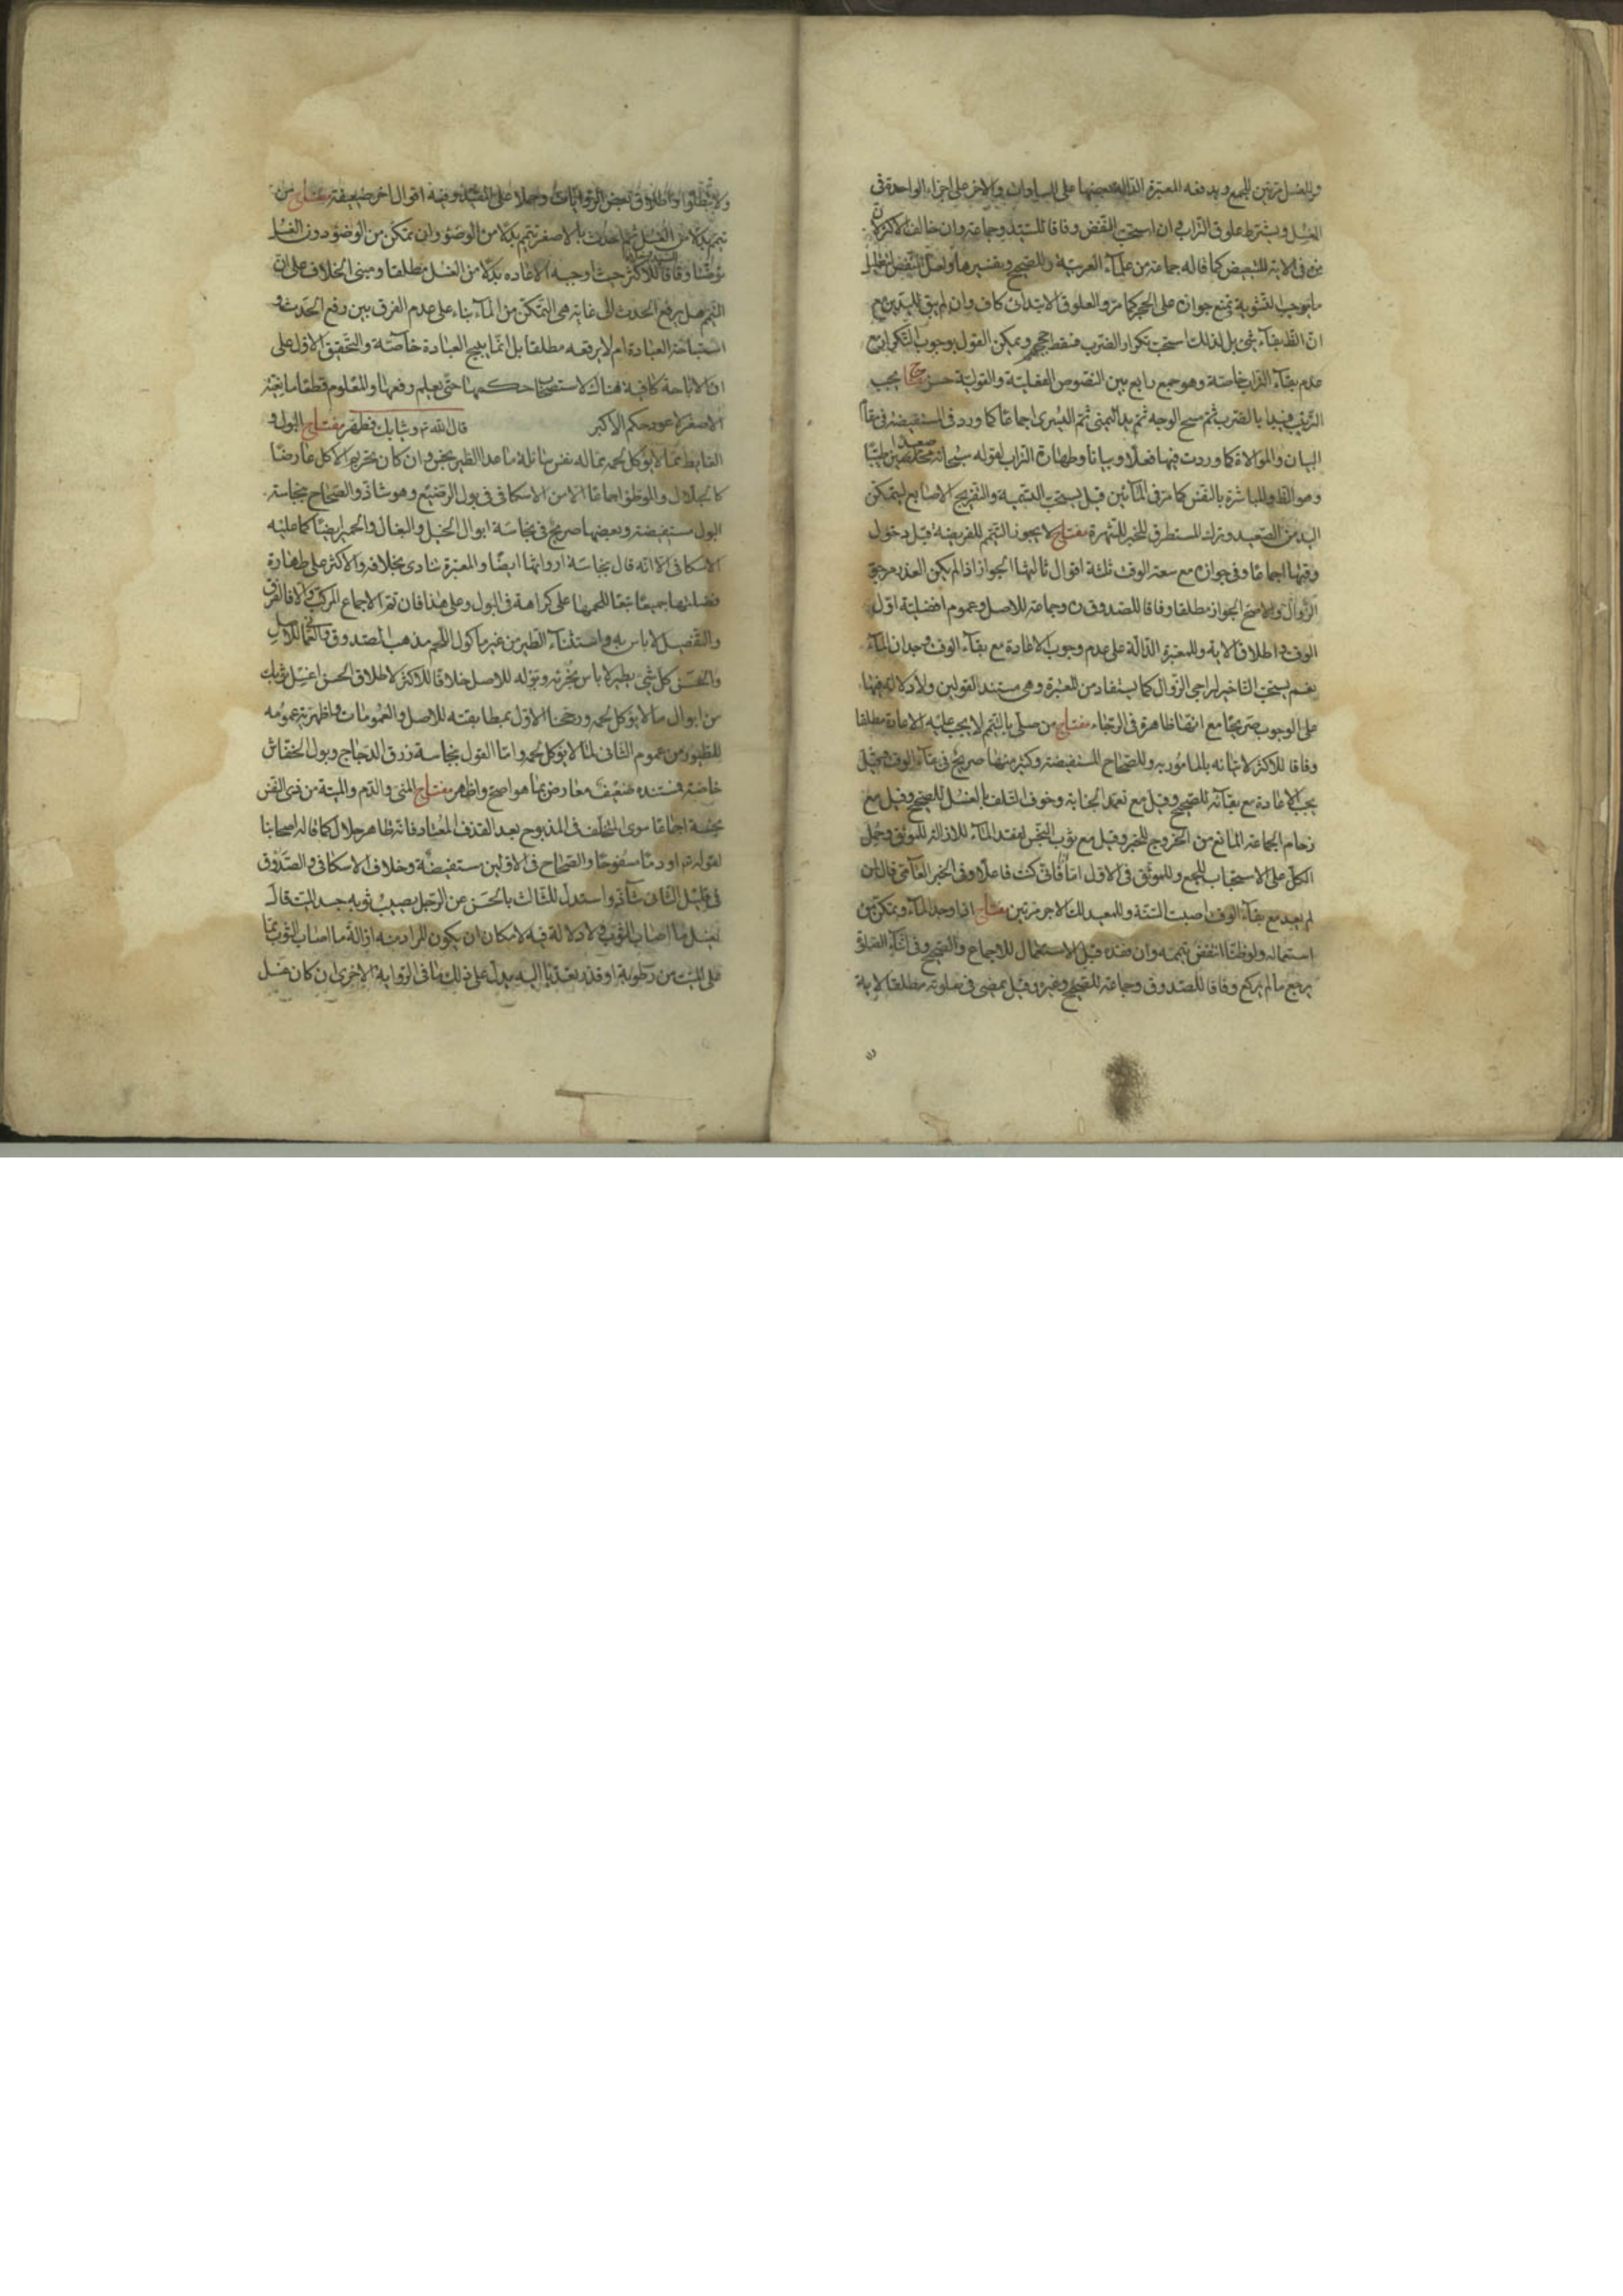 والغسل مرتين للجمع ويدفعه المعتبرة الدالة بعضها على المساوات والاخر على اجزاء الواحدة في
الغسل ويشترط علوق التراب في ان استحب النفض وفاقا للسيد وجماعة وان خالف الاكثر لان
من في الاية للتبعيض كما قاله جماعة من علماء العربية وللصحيح وبتفسيرها ولعل النفض لتقليل
ما يوجب التشوية يمنع جوازه على الحجر كما مر والعلوق الابتدائي كاف وان لم يبق لليدين مع
ان الظ بقاء شئ بل لذلك استحب تكرار الضرب فيقط ويمكن القول بوجوب التكرار مع
عدم بقاء التراب خاصة وهو جمع رابع بين النصوص الفعلية والقولية حسن مفتاح يجب
الترتيب فيبدا بالضرب ثم مسح الوجه ثم يد اليمنى ثم اليسرى اجماعا كما ورد في المستفيضة في مقام
البيان والموالاة كما وردت فيها فعلا وبيانا وطهارة التراب لقوله سبحانه صعيدا طيبا
وهو الظ والمباشرة بالنفس كما مر في المائين قيل يستحب التسمية والتفريج الاصابع ليتمكن
اليد من الصعيد وترك المستطرق للخبر للشهرة مفتاح لا يجوز التيمم للفريضة قبل دخول
وقتها اجماعا وفي جوازه مع سعة الوقت ثلثة اقوال ثالثها الجواز اذا لم يكن العذر مرجو
الزوال والاصح الجواز مطلقا وفاقا للصدوق ره وجماعة للاصل وعموم افضلية اول
الوقت واطلاق الاية وللمعتبرة الدالة على عدم وجوب الاعادة مع بقاء الوقت وجدان الماء
نعم يستحب التاخير لراجي الزوال كما يستفاد من المعتبرة وهي مستند القولين ولا دلالة فيها
على الوجوب صريحا مع انها ظاهرة في الرجاء مفتاح من صلى بالتيمم لا يجب عليه الاعادة مطلقا
وفاقا للاكثر لاتيانه بالمامور به وللصحاح المستفيضة وكثير منها صريح في بقاء الوقت وقيل
يجب الاعادة مع بقائه للصحيح وقيل مع تعمد الجنابة وخوف التلف بالغسل للصحيح وقيل مع
زحام الجماعة المانع من الخروج للخبر وقيل مع ثوب النجس لفقد الماء للازالة للموثق وحمل
الكل على الاستحباب للجمع وللموثق في الاول اما انا فاني كنت فاعلا وفي الخبر العامي قال لمن
لم يعد مع بقاء الوقت اصبت السنة وللمعيد لك الاجر مرتين مفتاح اذا وجد الماء وتمكن من
استعماله ولو ظنا انتقض تيممه وان فقده قبل الاستعمال للاجماع والصحيح وفي اثناء الصلوة
يرجع ما لم يركع وفاقا للصدوق وجماعة للصحيح وغيره وقيل يمضي في صلوته مطلقا لاية
ولا تبطلوا واطلاق بعض الروايات وحملا على المقيد وفيه اقوال اخر ضعيفة مفتاح من
تيمم بدلا من الغسل ثم احدث بالاصغر تيمم بدلا من الوضوء وان تمكن من الوضوء دون الغسل
توضأ وفاقا للسيد خلافا للاكثر حيث اوجبه الاعاده بدلا من الغسل مطلقا ومبنى الخلاف على ان
التيمم هل يرفع الحدث الى غاية هي التمكن من الماء بناء على عدم الفرق بين رفع الحدث و
استباحة العبادة ام لا يرفعه مطلقا بل انما يبيح العبادة خاصة والتحقيق الاول على
ان الاباحة كافية هناك لاستصحاب حكمها حتى يعلم رفعها والمعلوم قطعا مانعية
الاصغر لا عود حكم الاكبر قال الله تع وثيابك فطهر مفتاح البول و
الغايط مما لا يؤكل لحمه مما له نفس سائلة ما عدا الطير نجس وان كان تحريم الاكل عارضا
كالجلال والموطؤ اجماعا الا من الاسكافي في بول الرضيع وهو شاذ والصحاح بنجاسة
البول مستفيضة وبعضها صريح في نجاسة ابوال الخيل والبغال والحمير ايضا كما عليه
الاسكافي الا انه قال بنجاسة ارواثها ايضا والمعتبرة تنادى بخلافه والاكثر على طهارة
فضلتها جميعا تبعا للحمها على كراهة في البول وعلى هذا فان تم الاجماع المركب والا فالفرق
والتفصيل لا باس به واستثناء الطير من غير ماكول اللحم مذهب الصدوق والعماني للاصل
والحسن كل شئ يطير لا باس بخرئه وبوله للاصل خلافا للاكثر لاطلاق الحسن اغسل ثوبك
من ابوال ما لا يؤكل لحمه ورجحنا الاول بمطابقته للاصل والعمومات واظهرية عمومه
للطيور من عموم الثاني لما لا يؤكل لحمه واما القول بنجاسة زرق الدجاج وبول الخفاش
خاصة فمستنده ضعيف معارض بما هو اصح واظهر مفتاح المني والدم والميتة من ذى النفس
نجسة اجماعا سوى المتخلف في المذبوح بعد القذف المعتاد فانه طاهر حلال كما قاله اصحابنا
لقوله تع او دما مسفوحا والصحاح في الاولين مستفيضة وخلاف الاسكافي والصدوق
في قليل الثاني شاذ واستدل للثالث بالحسن عن الرجل يصيب ثوبه جسد الميت قال
يغسل ما اصاب الثوب ولا دلالة فيه لامكان ان يكون المراد منه ازالة ما اصاب الثوب مما
على الميت من رطوبة او قذر تعديا اليه يدل على ذلك ما في الرواية الاخرى ان كان غسل